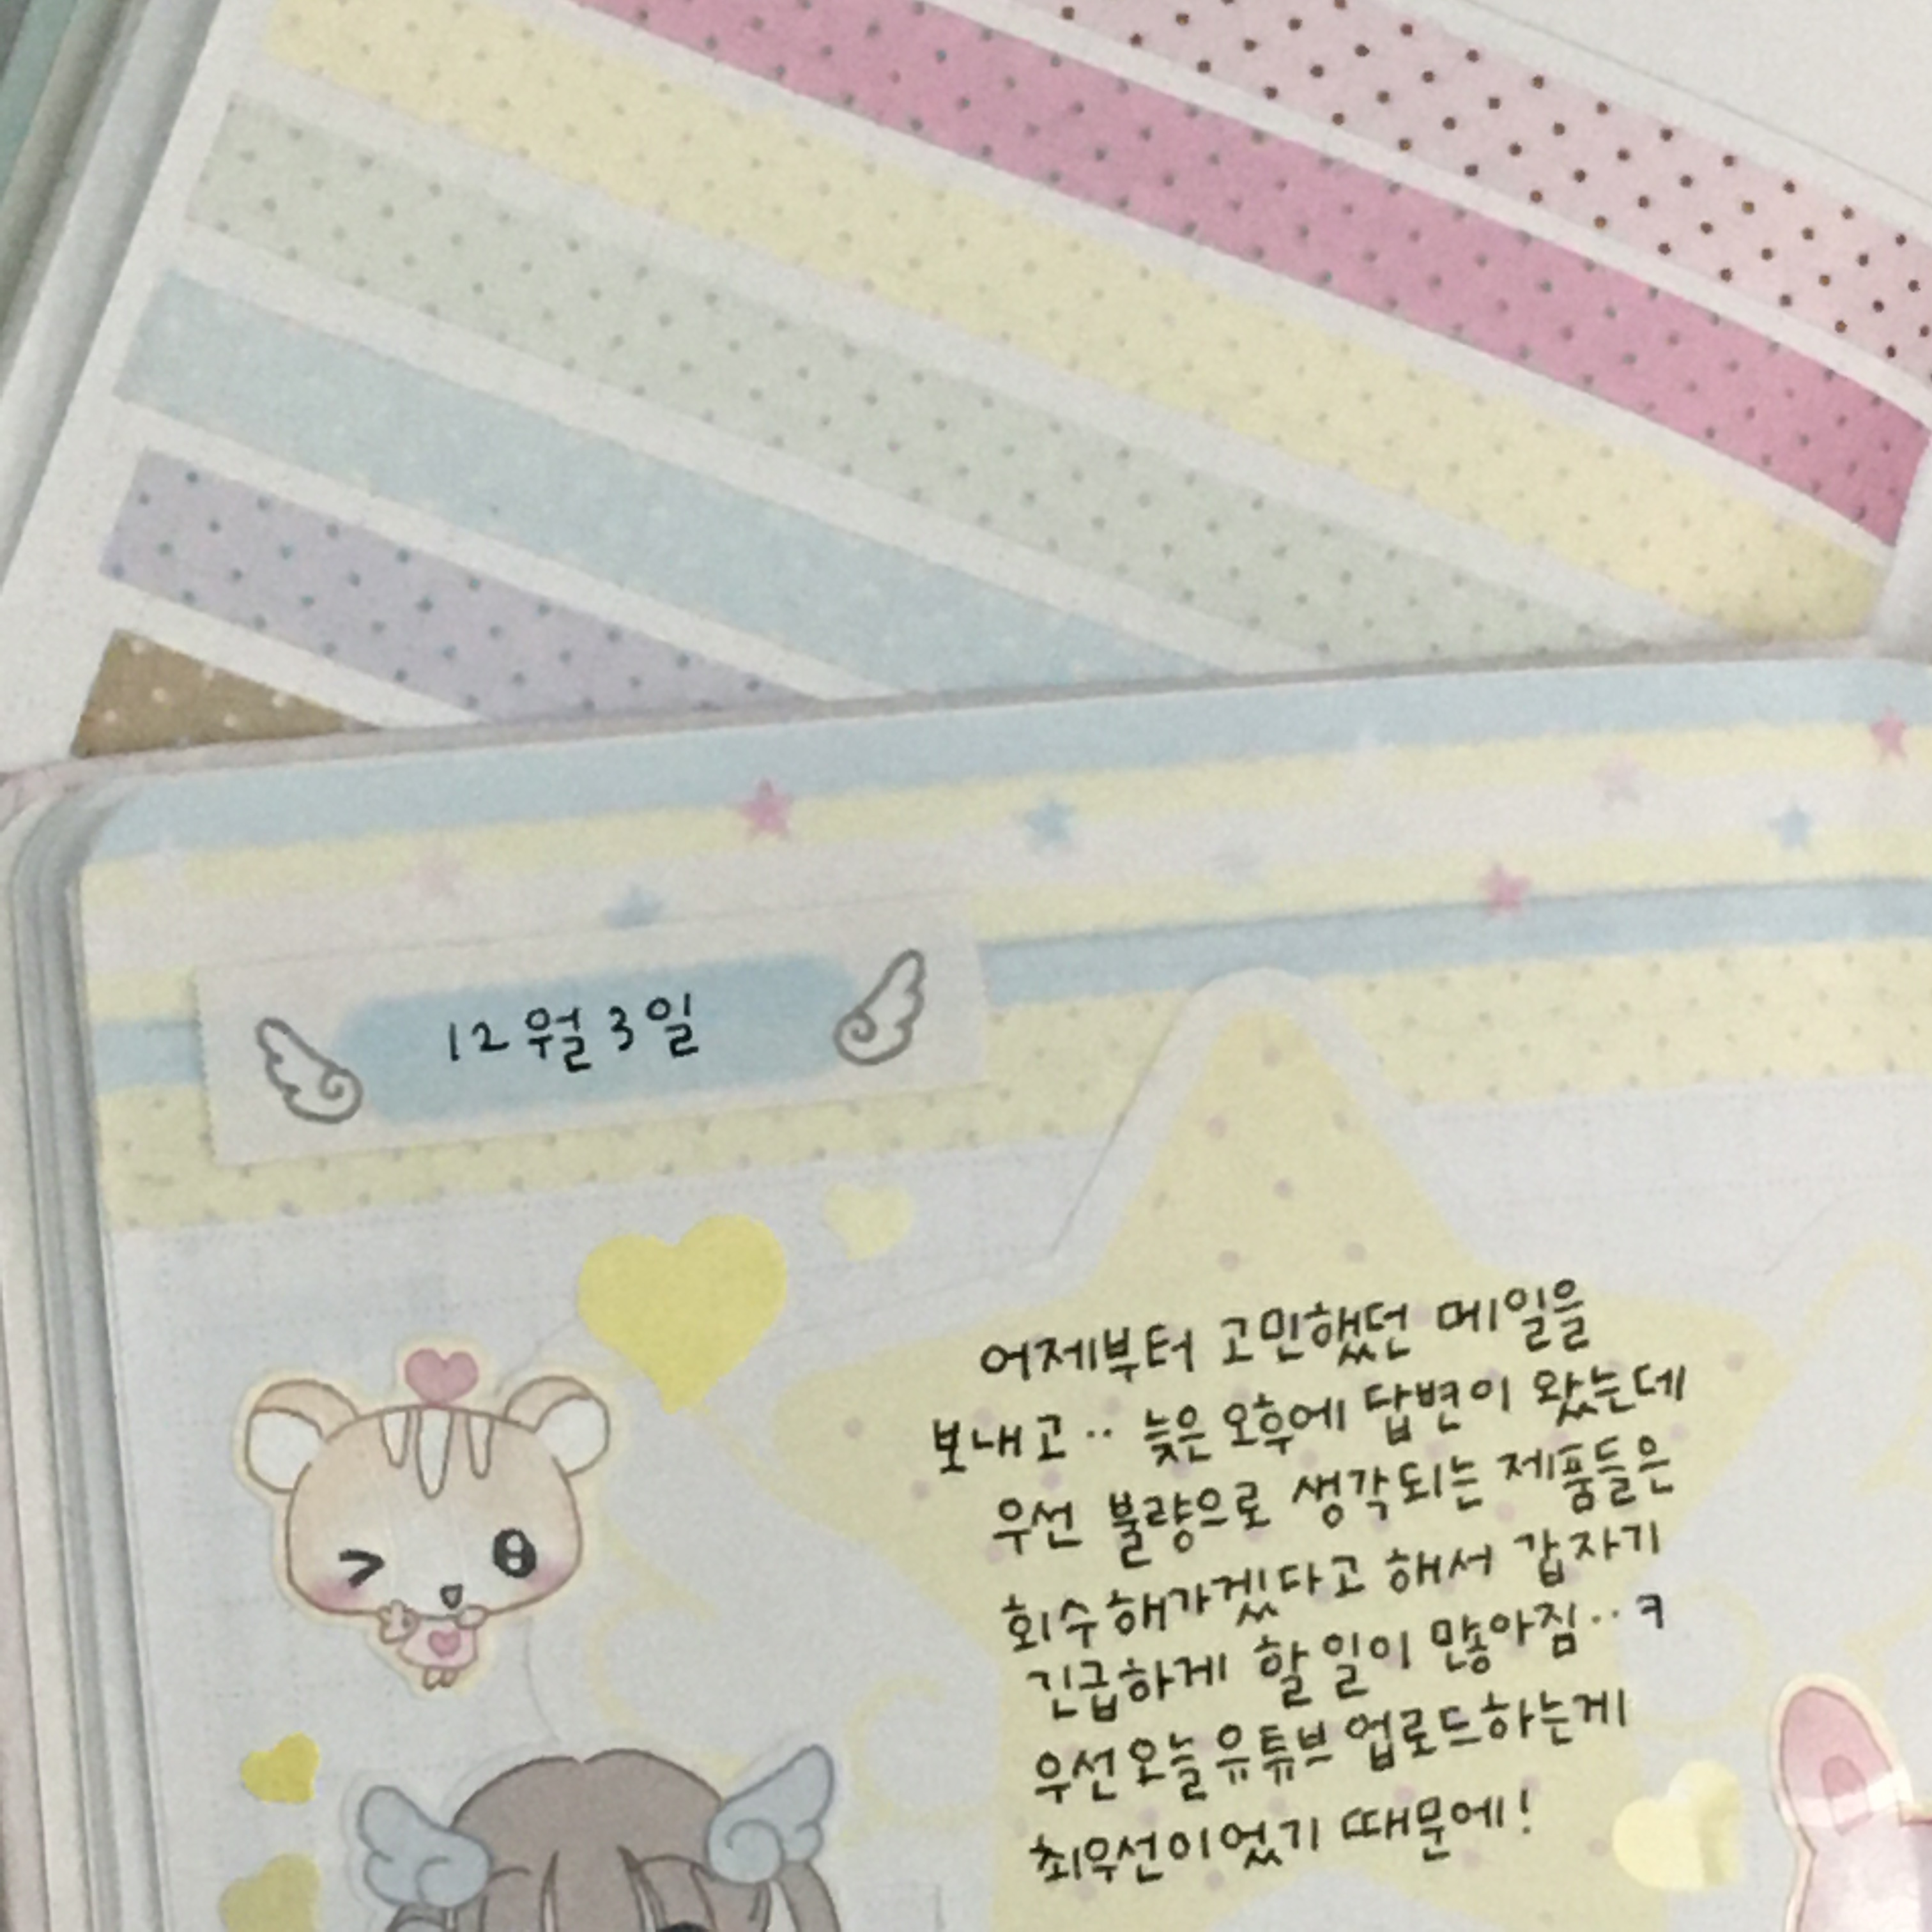 12월 3일
어제부터 고민했던 메일을
보내고.. 늦은 오후에 답변이 왔는데
우선 불량으로 생각되는 제품들은
회수해가겠다고 해서 갑자기
긴급하게 할 일이 많아짐..ㅋ
우선 오늘 유튜브 업로드하는게
최우선이었기 때문에!